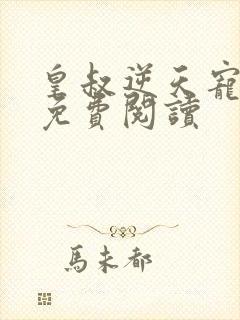 皇叔逆天寵
免費閱讀
馬未都